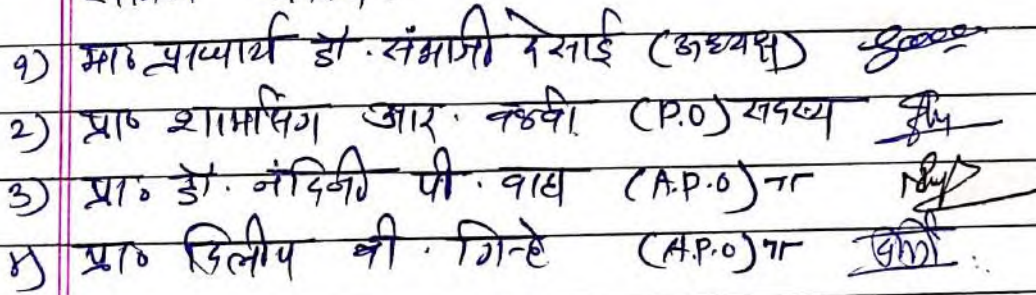 १) मा० प्राचार्य डॉ. संभाजी देसाई (अध्यक्ष)
२) प्रा० शामसिंग आर. वळवी (P.O) सदस्य
३) प्रा. डॉ. नंदिनी पी. वाघ (A.P.O) ”
४) प्रा० दिलीप बी. गिऱ्हे (A.P.O) ”